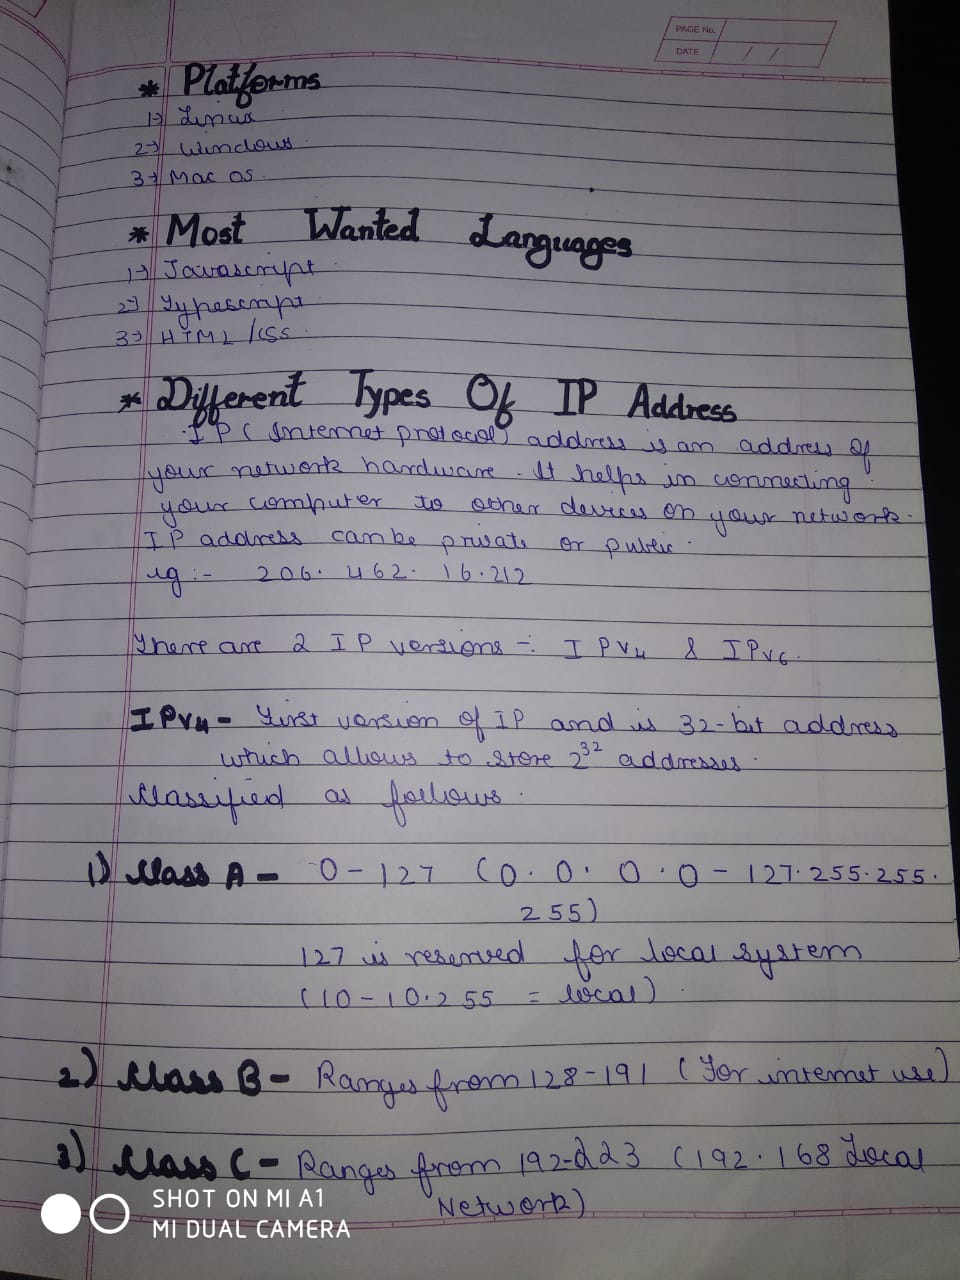 PAGE No.
DATE / /
* Platforms
1→ Linux
2→ Windows.
3→ Mac OS.
* Most Wanted Languages
1→ Javascript
2→ Typescript
3→ HTML /CSS.
* Different Types Of IP Address
IP (Internet protocol) address is an address of
your network hardware. It helps in connecting
your computer to other devices on your network.
IP address can be private or public.
eg :- 206. 462. 16.212
There are 2 IP versions -: IPv4 & IPv6.
IPv4 - First version of IP and is 32-bit address
which allows to store 2^32 addresses.
Classified as follows.
1) Class A - 0-127 (0. 0. 0. 0 - 127.255.255.
255)
127 is reserved for local system
(10-10.255 = local)
2) Class B - Ranges from 128-191 (For internet use)
3) Class C - Ranges from 192-223 (192.168 Local
Network)
SHOT ON MI A1
MI DUAL CAMERA